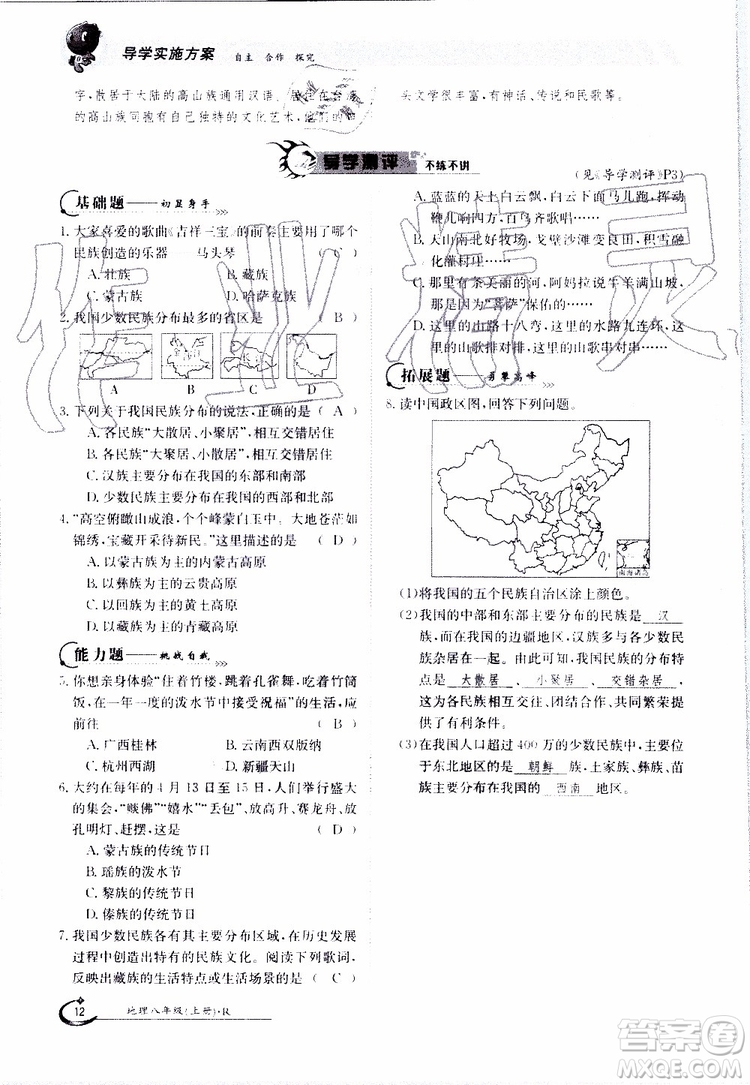 导学实施方案 自主 合作 探究
字，散居于大陆的高山族通用汉语。居住在台湾
的高山族同胞有自己独特的文化艺术，他们的口
头文学很丰富，有神话、传说和民歌等。
导学测评 不练不讲
基础题——初显身手
1. 大家喜爱的歌曲《吉祥三宝》的前奏使用了哪个
民族创造的乐器——马头琴 （ C ）
A. 壮族 B. 藏族
C. 蒙古族 D. 哈萨克族
2. 我国少数民族分布最多的省区是 （ B ）
A B C D
3. 下列关于我国民族分布的说法，正确的是 （ A ）
A. 各民族“大散居、小聚居”，相互交错居住
B. 各民族“大聚居、小散居”，相互交错居住
C. 汉族主要分布在我国的东部和南部
D. 少数民族主要分布在我国的西部和北部
4. “高空俯瞰山成浪，个个峰蒙白玉中。大地苍茫如
锦绣，宝藏开采待新民。”这里描述的是 （ D ）
A. 以蒙古族为主的内蒙古高原
B. 以彝族为主的云贵高原
C. 以回族为主的黄土高原
D. 以藏族为主的青藏高原
能力题——挑战自我
5. 你想亲身体验“住着竹楼，跳着孔雀舞，吃着竹筒
饭，在一年一度的泼水节中接受祝福”吗？那应
前往 （ B ）
A. 广西桂林 B. 云南西双版纳
C. 杭州西湖 D. 新疆天山
6. 大约在每年的 4 月 13 日至 15 日，人们举行盛大
的集会，“赕佛”“嬉水”“丢包”、放高升、赛龙舟、放
孔明灯、赶摆，这是 （ D ）
A. 蒙古族的传统节日
B. 瑶族的泼水节
C. 黎族的传统节日
D. 傣族的传统节日
7. 我国少数民族各有其主要分布区域，在历史发展
过程中创造出特有的民族文化。阅读下列歌词，
反映出藏族的生活特点或生活场景的是 （ C ）
12 地理八年级(上册)·R
(见《导学测评》P3)
A. 蓝蓝的天上白云飘，白云下面马儿跑，挥动
鞭儿响四方，百鸟齐歌唱……
B. 天山南北好牧场，戈壁沙滩变良田，积雪融
化灌农庄……
C. 那里有条美丽的河，阿妈拉说牛羊满山坡，
那是因为“菩萨”保佑的……
D. 这里的山路十八弯，这里的水路九连环，这
里的山歌排对排，这里的山歌串对串……
拓展题——勇攀高峰
8. 读中国政区图，回答下列问题。
南海诸岛
(1)将我国的五个民族自治区涂上颜色。
(2)我国的中部和东部主要分布的民族是 汉
族。而在我国的边疆地区，汉族多与各少数民
族杂居在一起。由此可见，我国民族的分布特
点是 大散居 、 小聚居 、 交错杂居 ，这
为各民族相互交往、团结合作、共同繁荣提供
了有利条件。
(3)在我国人口超过 400 万的少数民族中，分布
于东北地区的有 朝鲜 族，土家族、彝族、苗
族主要分布在我国的 西南 地区。
答案圈